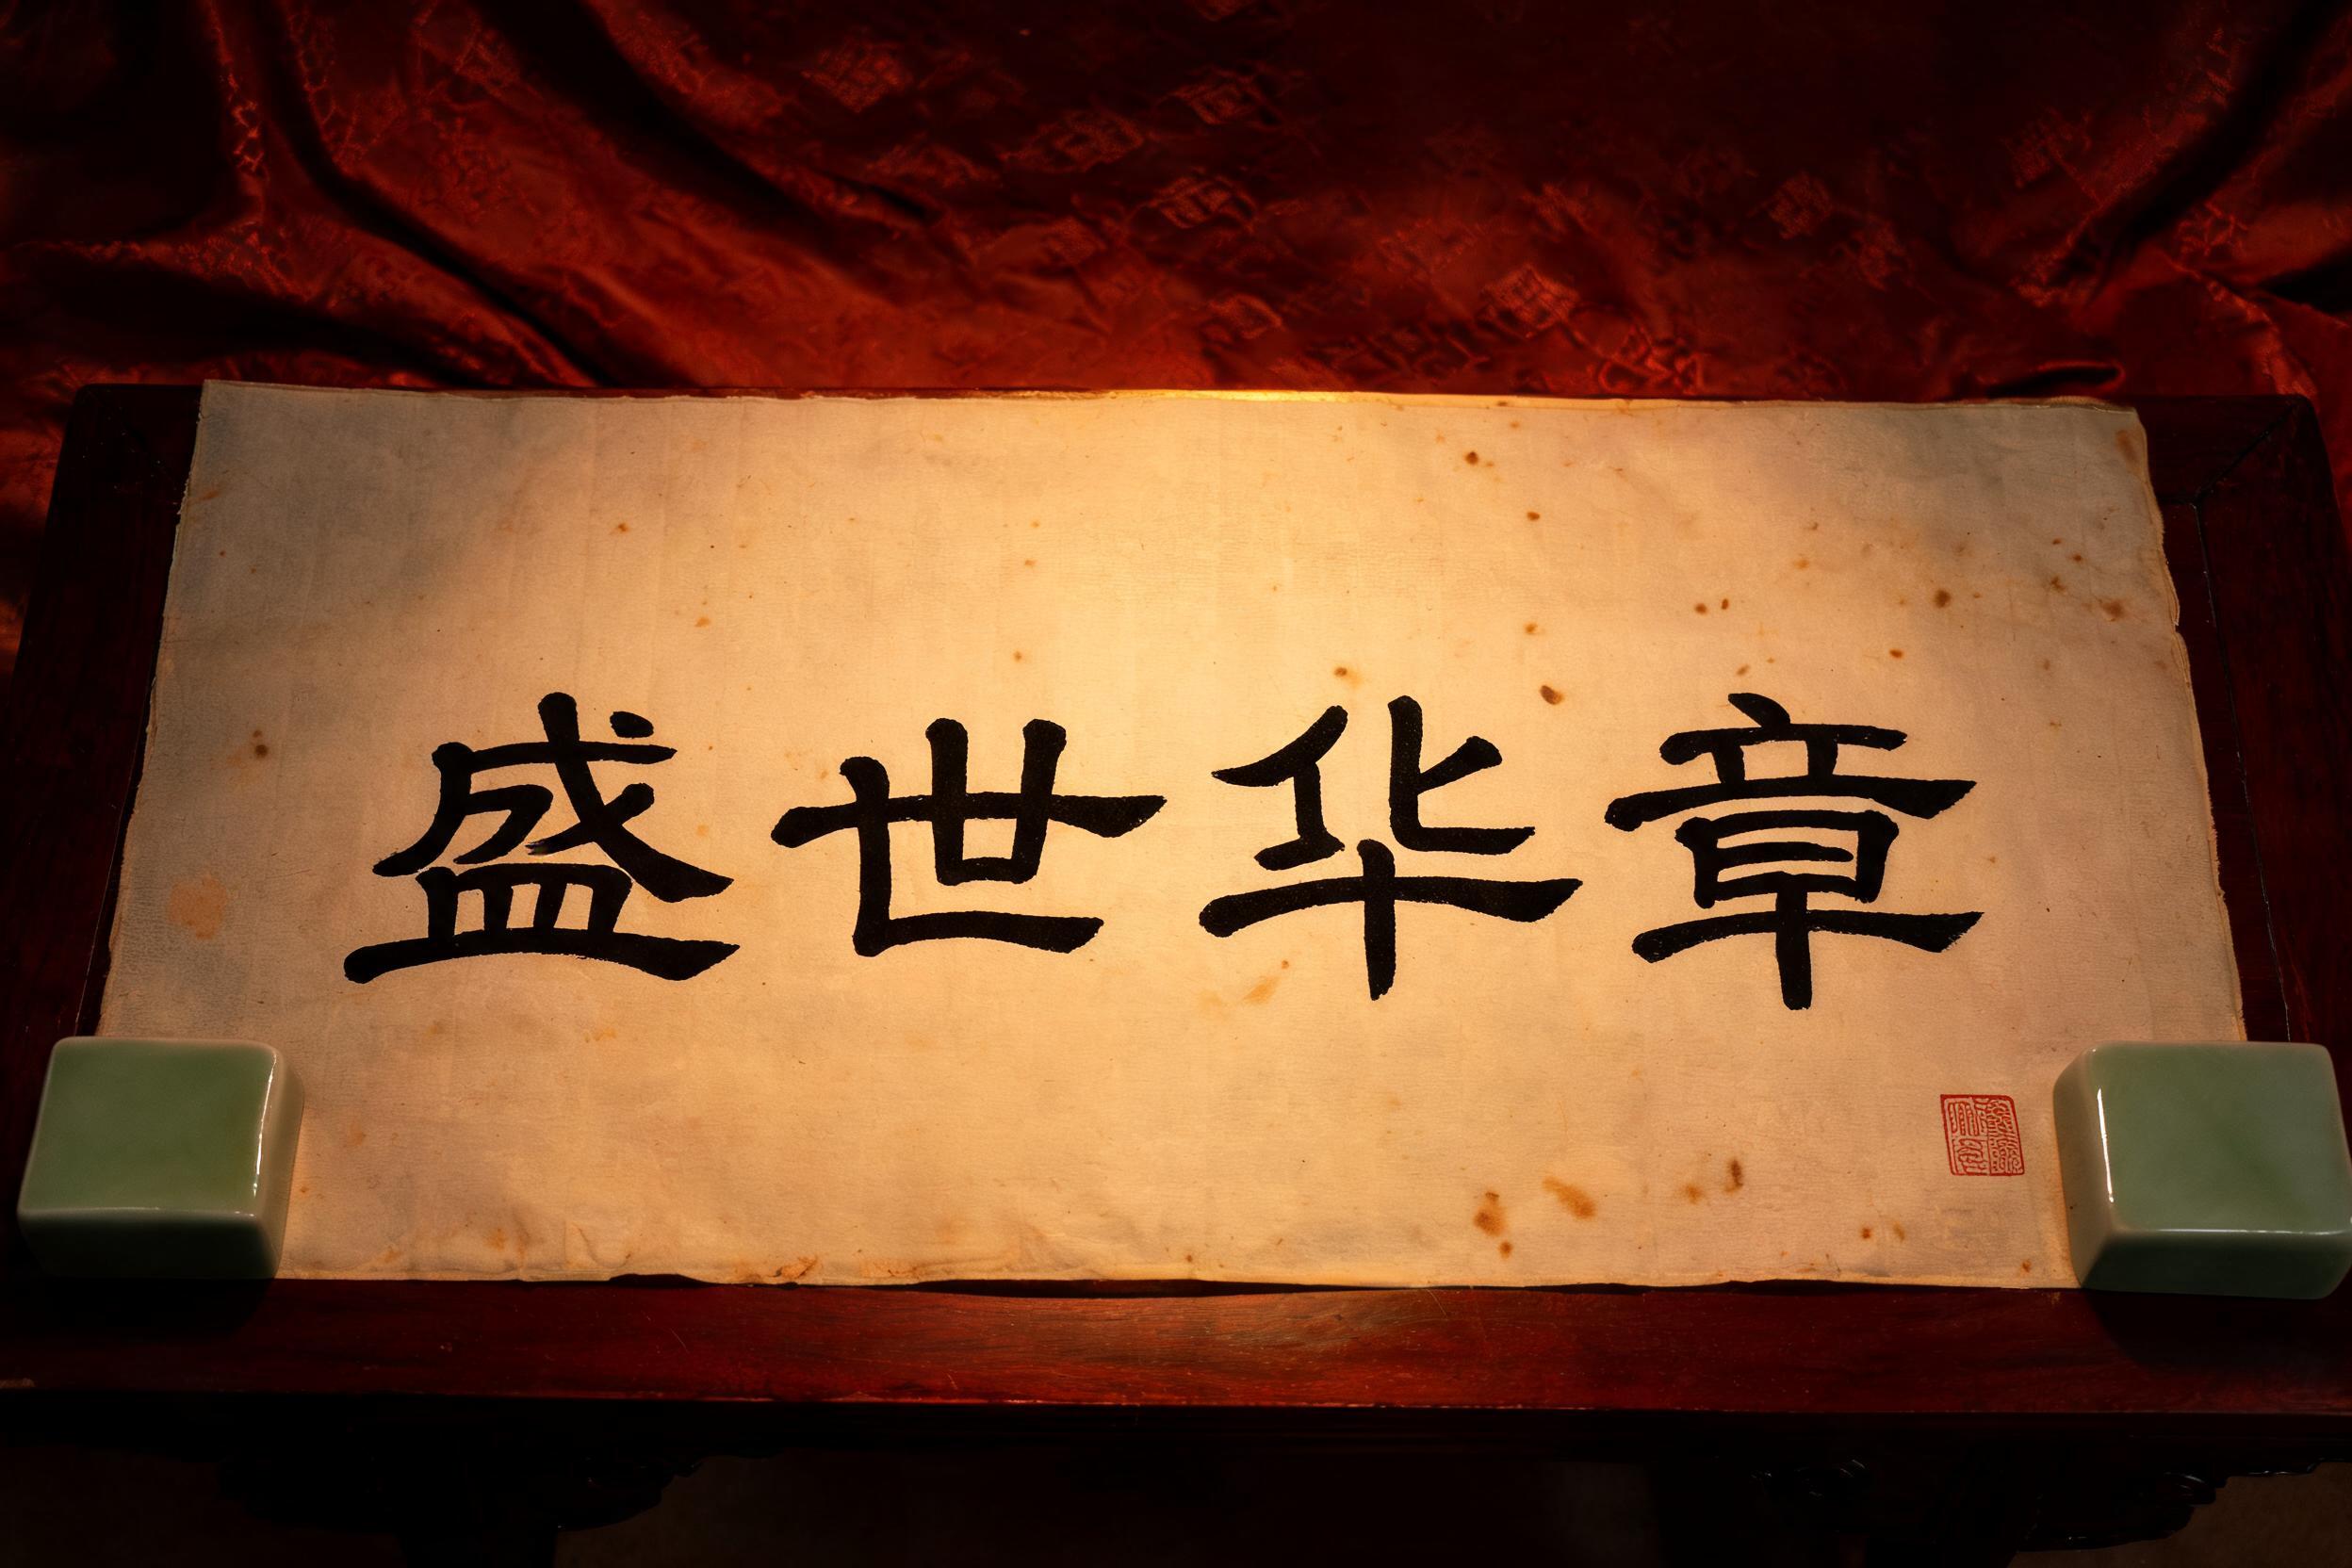 盛世华章